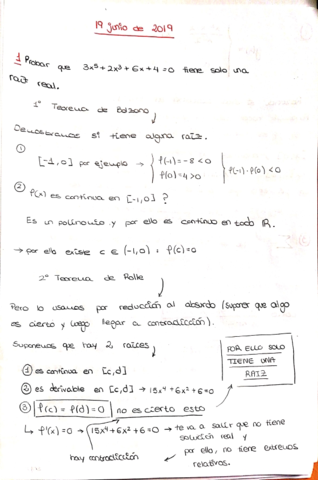 19 junio de 2019
1 Probar que 3x⁵ + 2x³ + 6x + 4 = 0 tiene solo una
raiz real.
1º Teorema de Bolzano
Demostramos si tiene alguna raiz.
① [-1,0] por ejemplo → { f(-1) = -8 < 0 f(0) = 4 > 0 } f(-1)·f(0) < 0
② f(x) es continua en [-1,0] ?
Es un polinomio y por ello es continuo en todo ℝ.
→ por ello existe c ∈ (-1,0) : f(c) = 0
2º Teorema de Rolle
Pero lo usamos por reducción al absurdo (suponer que algo
es cierto y luego llegar a contradicción).
Suponemos que hay 2 raices
① es continua en [c,d]
② es derivable en [c,d] → 15x⁴ + 6x² + 6 = 0
③ f(c) = f(d) = 0 no es cierto esto
POR ELLO SOLO
TIENE UNA
RAIZ
↳ f'(x) = 0 → 15x⁴ + 6x² + 6 = 0 → te va a salir que no tiene
solución real y
por ello, no tiene extremos
relativos.
hay contradicción